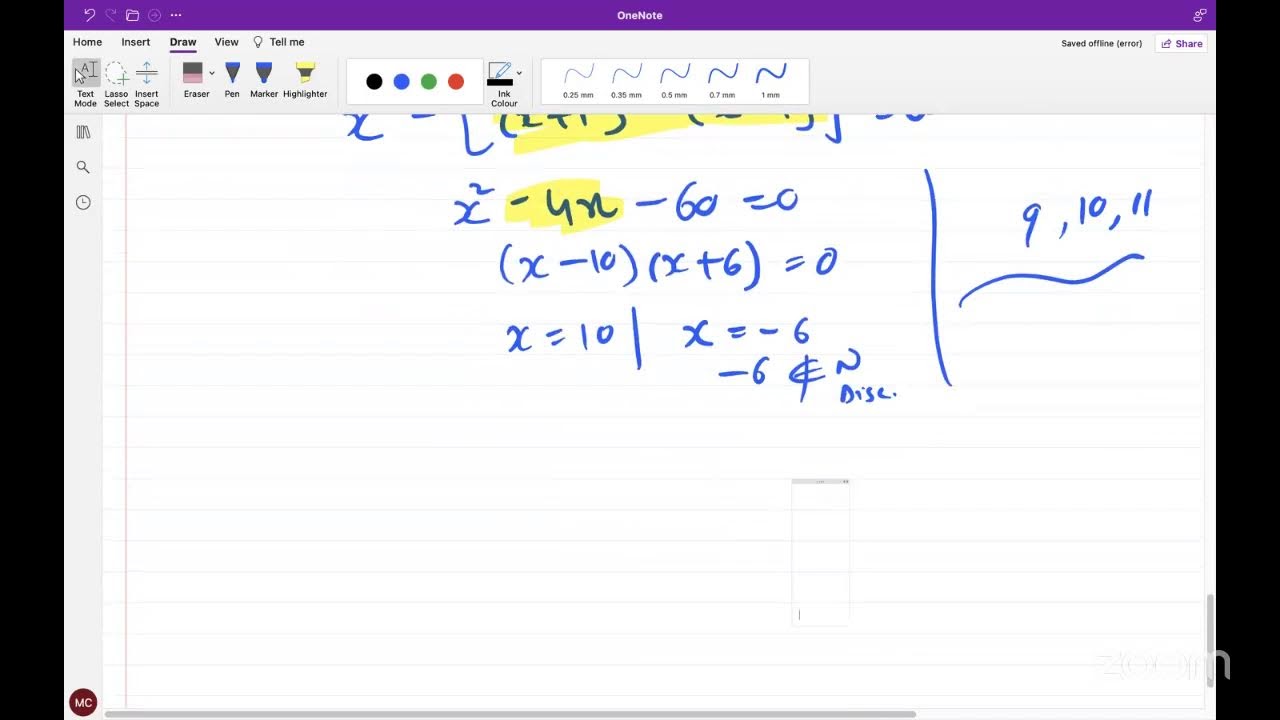 OneNote
Home Insert Draw View Tell me
Saved offline (error) Share
Text Mode
Lasso Select
Insert Space
Eraser
Pen
Marker
Highlighter
Ink Colour
0.25 mm 0.35 mm 0.5 mm 0.7 mm 1 mm
x² - 4x - 60 = 0
(x - 10)(x + 6) = 0
x = 10 | x = - 6
-6 ∉ N
Disc.
9, 10, 11
MC
zoom